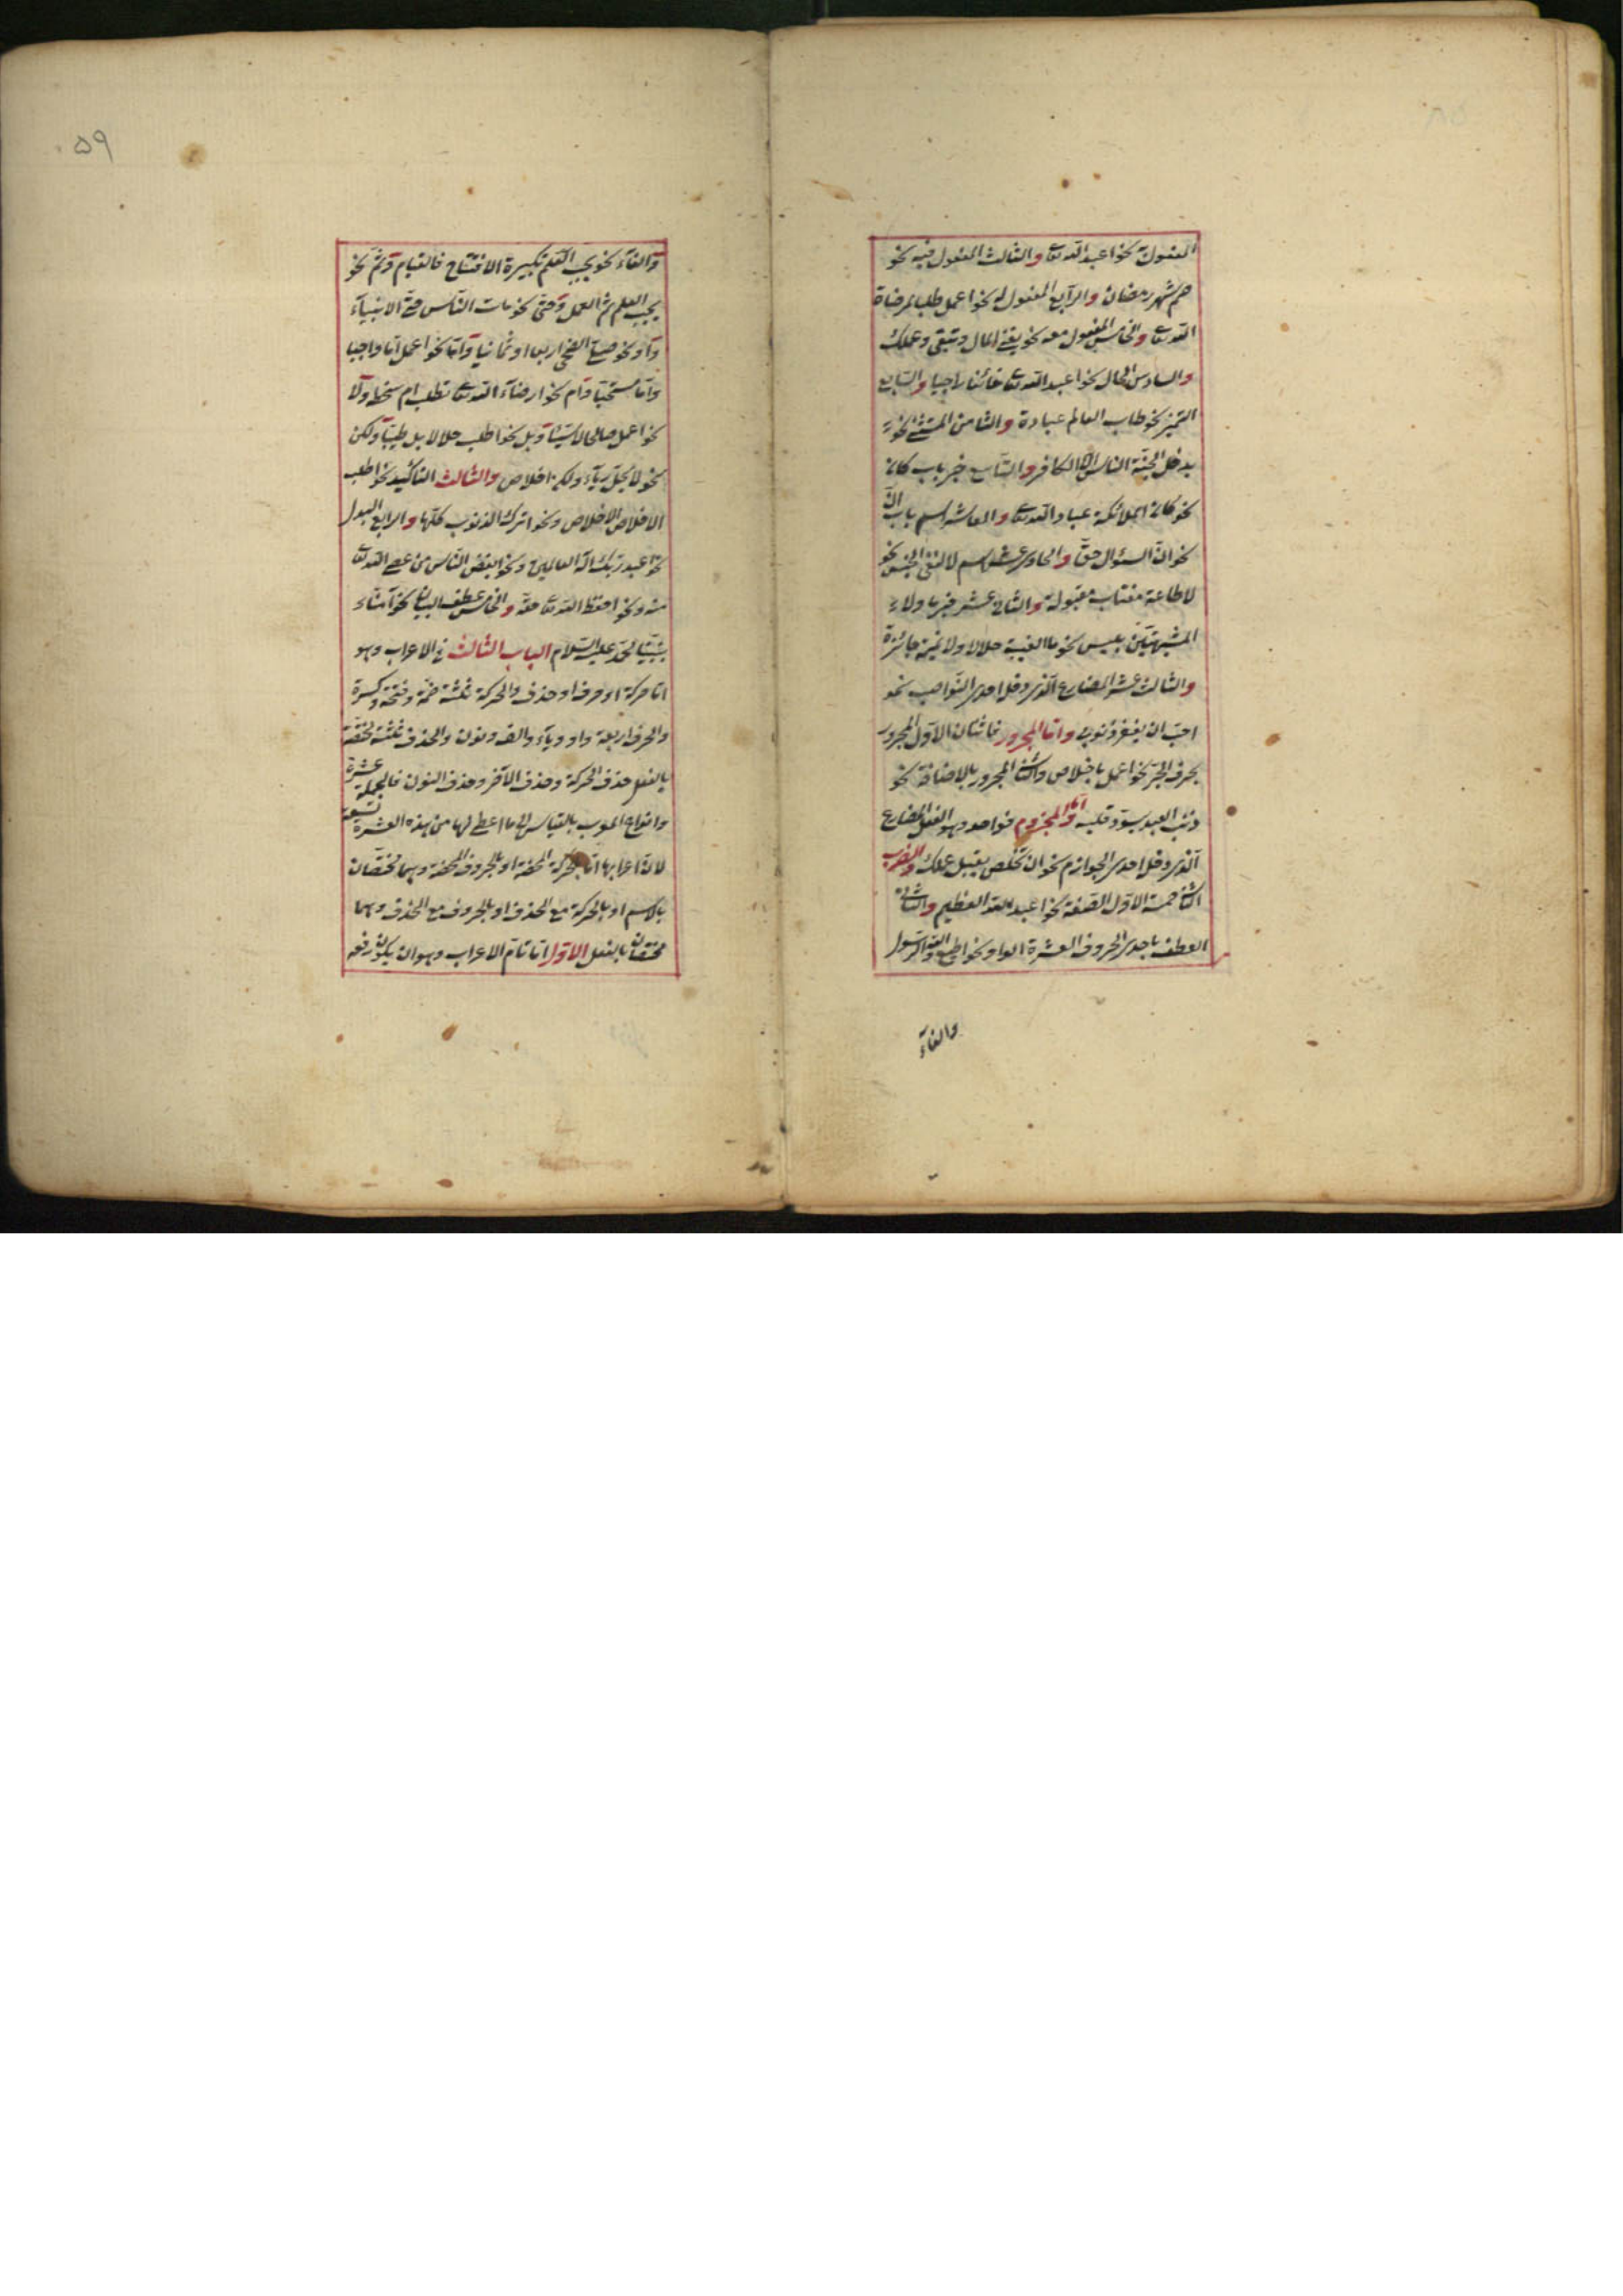 المفعول به نحو اعبد الله تعا والثالث المفعول فيه نحو
صم شهر رمضان والرابع المفعول له نحو اعمل طلبا لمرضاة
الله تعا والخامس المفعول معه نحو يفنى المال وتبقى وعملك
والسادس الحال نحو اعبد الله تعا خائفا راجيا والسابع
التميز نحو طاب العالم عبادة والثامن المستثنى نحو
يدخل الجنة الناس الا الكافر والتاسع خبر باب كان
نحو كان الملائكة عباد الله تعا والعاشر اسم باب ان
نحو ان السؤال حق والحادى عشر اسم لا لنفى الجنس نحو
لا طاعة مغتاب مقبولة والثانى عشر خبر ما ولا
المشبهتين بليس نحو ما الغيبة حلالا ولا نميمة جائزة
والثالث عشر المضارع الذى دخله احدى النواصب نحو
احب ان يغفر ذنوبى واما المجرور فاثنان الاول المجرور
بحرف الجر نحو اعمل باخلاص والثانى المجرور بالاضافة نحو
ذنب العبد يسود قلبه واما المجزوم فواحد وهو الفعل المضارع
الذى دخله احدى الجوازم نحو ان تخلص يقبل عملك والضرب
الثانى خمسة الاول الصفة نحو اعبد الله العظيم والثانى
العطف باحدى الحروف العشرة الواو نحو اطع الله والرسول
والفاء
۵۹
والفاء نحو يجب التعلم تكبيرة الافتتاح فالقيام وثم نحو
يجب العلم ثم العمل وحتى نحو مات الناس حتى الانبياء
واو نحو صل الضحى اربعا او ثمانيا واما نحو اعمل اما واجبا
واما مستحبا وام نحو ارضاء الله تعا تطلب ام سخطه ولا
نحو اعمل صالحا لا سيئا وبل نحو اطلب حلالا بل طيبا ولكن
نحو لا يحل رياء ولكن اخلاص والثالث التاكيد نحو اطلب
الاخلاص الاخلاص ونحو اترك الذنوب كلها والرابع البدل
نحو اعبد ربك اله العالمين ونحو ابغض الناس من عصى الله تعا
منه ونحو احفظ الله تعا حقه والخامس عطف البيان نحو آمنا
بنبينا محمد عليه السلام الباب الثالث فى الاعراب وهو
اما حركة او حرف او حذف والحركة ثلثة ضمة وفتحة وكسرة
والحرف اربعة واو وياء والف ونون والحذف ثلثة مختصة
بالفعل حذف الحركة وحذف الآخر وحذف النون فالجملة عشرة
وانواع المعرب بالقياس الى ما اعطى لها من هذه العشرة تسعة
لان اعرابها اما بالحركة المحضة او بالحروف المحضة وهما مختصان
بالاسم او بالحركة مع الحذف او بالحروف مع الحذف وهما
مختصان بالفعل الاول اما تام الاعراب وهو ان يكون رفعه